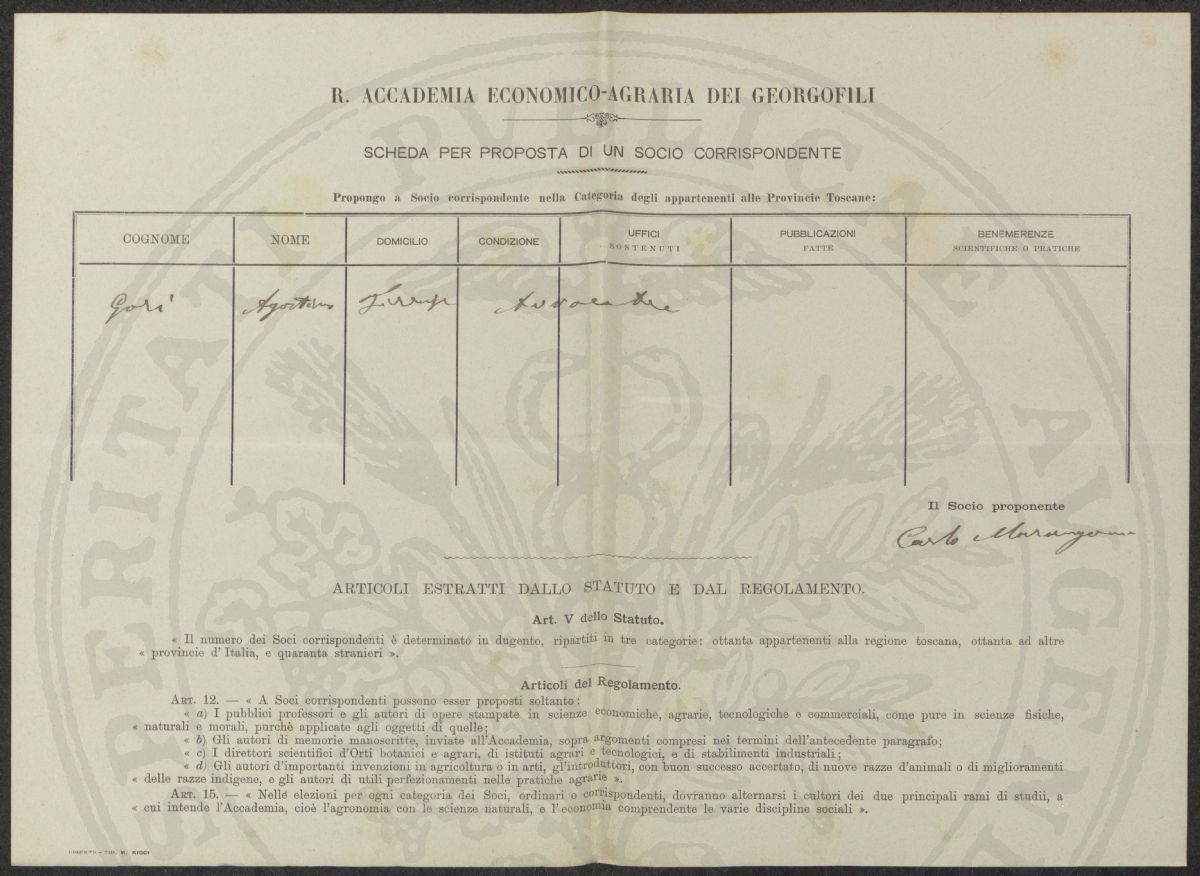 R. ACCADEMIA ECONOMICO-AGRARIA DEI GEORGOFILI
SCHEDA PER PROPOSTA DI UN SOCIO CORRISPONDENTE
Propongo a Socio corrispondente nella Categoria degli appartenenti alle Provincie Toscane:
COGNOME NOME DOMICILIO CONDIZIONE UFFICI SOSTENUTI PUBBLICAZIONI FATTE BENEMERENZE SCIENTIFICHE O PRATICHE
Gori Agostino Firenze Avvocato
Il Socio proponente
Carlo Marangoni
ARTICOLI ESTRATTI DALLO STATUTO E DAL REGOLAMENTO.
Art. V dello Statuto.
« Il numero dei Soci corrispondenti è determinato in dugento, ripartiti in tre categorie: ottanta appartenenti alla regione toscana, ottanta ad altre
« provincie d'Italia, e quaranta stranieri ».
Articoli del Regolamento.
ART. 12. — « A Soci corrispondenti possono esser proposti soltanto:
« a) I pubblici professori e gli autori di opere stampate in scienze economiche, agrarie, tecnologiche e commerciali, come pure in scienze fisiche,
« naturali e morali, purchè applicate agli oggetti di quelle;
« b) Gli autori di memorie manoscritte, inviate all'Accademia, sopra argomenti compresi nei termini dell'antecedente paragrafo;
« c) I direttori scientifici d'Orti botanici e agrari, di istituti agrari e tecnologici, e di stabilimenti industriali;
« d) Gli autori d'importanti invenzioni in agricoltura o in arti, gl'introduttori, con buon successo accertato, di nuove razze d'animali o di miglioramenti
« delle razze indigene, e gli autori di utili perfezionamenti nelle pratiche agrarie ».
ART. 15. — « Nelle elezioni per ogni categoria dei Soci, ordinari o corrispondenti, dovranno alternarsi i cultori dei due principali rami di studii, a
« cui intende l'Accademia, cioè l'agronomia con le scienze naturali, e l'economia comprendente le varie discipline sociali ».
TIP. M. RICCI
PROSPERITATI PUBLICAE AUGENDAE